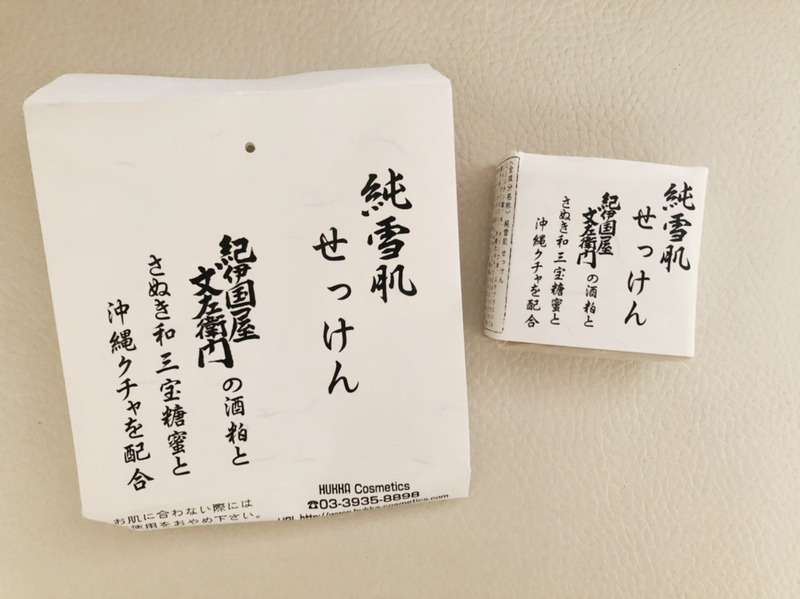 純雪肌
せっけん
紀伊国屋
文左衛門の酒粕と
さぬき和三宝糖蜜と
沖縄クチャを配合
HUKKA Cosmetics
☎03-3935-8898
URL http://www.hukka-cosmetics.com
お肌に合わない際には
使用をおやめ下さい。
純雪肌
せっけん
紀伊国屋
文左衛門の酒粕と
さぬき和三宝糖蜜と
沖縄クチャを配合
純雪肌 せっけん